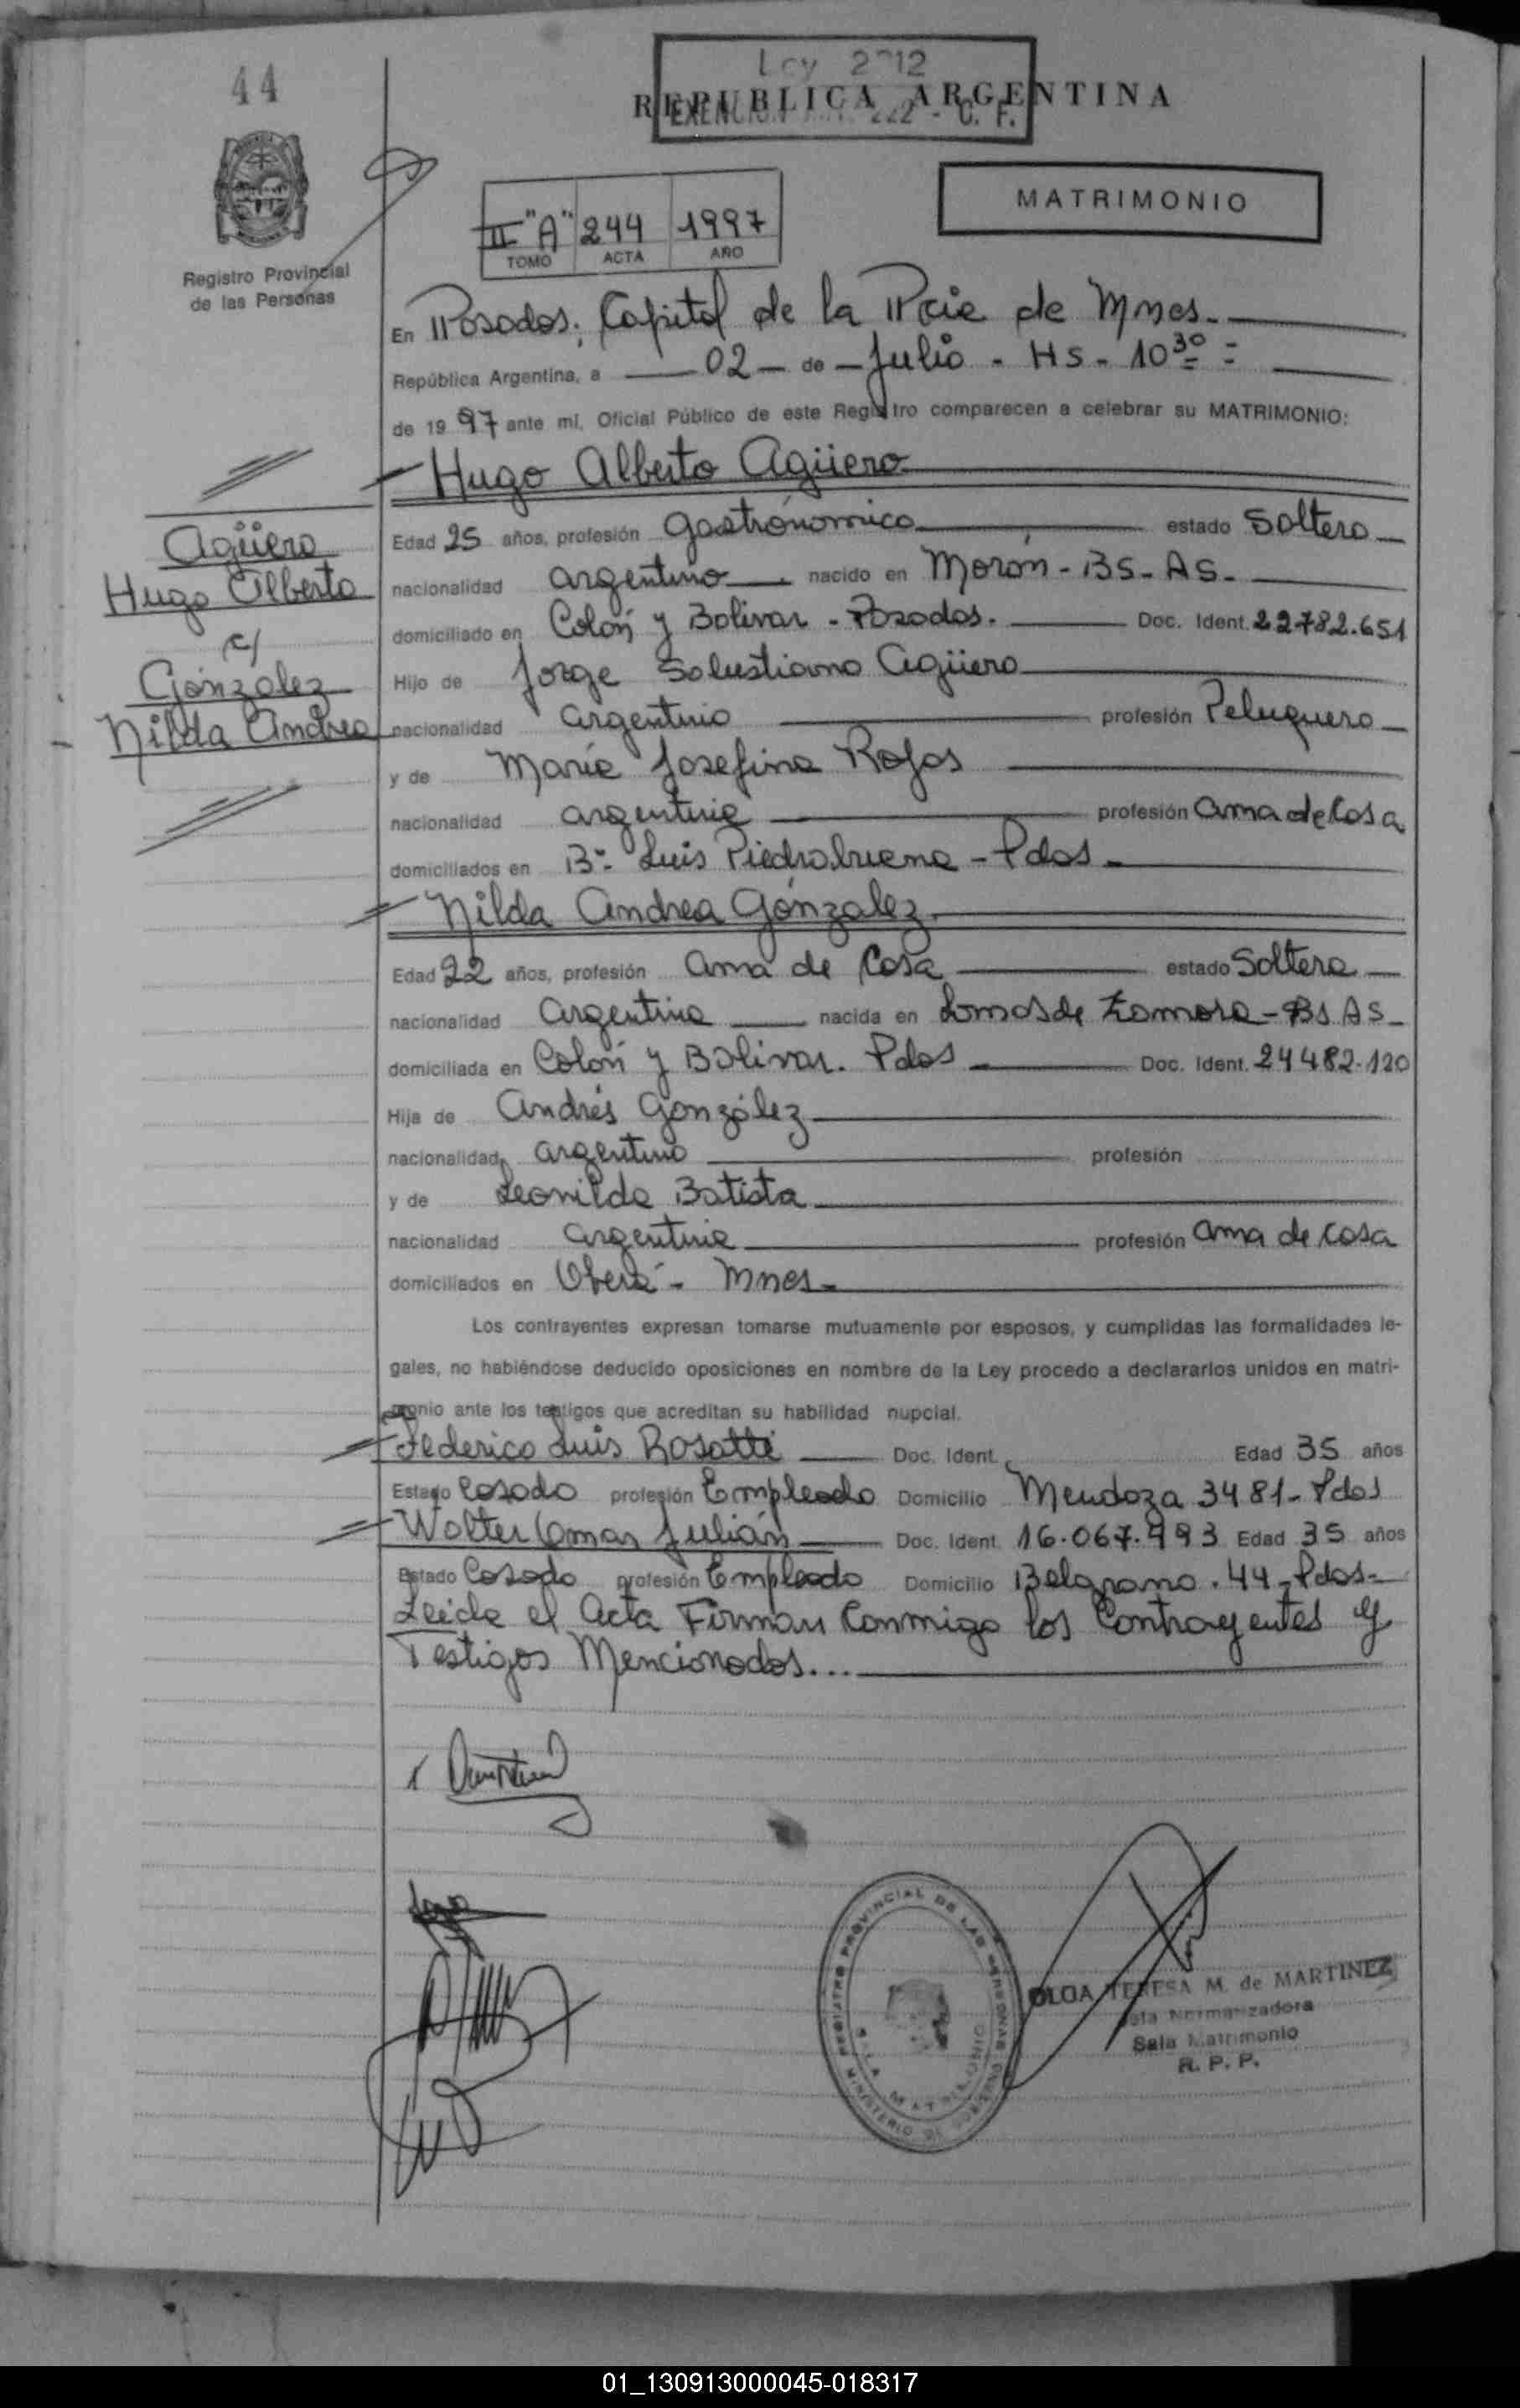 44
Ley 2712
REPUBLICA ARGENTINA
EXENCION 222 - C. F.
MATRIMONIO
II "A" 244 1997
TOMO ACTA AÑO
Registro Provincial
de las Personas
En Posadas, Capital de la Pcia de Mnes.
República Argentina, a 02 de Julio - Hs - 10 30
de 1997 ante mí, Oficial Público de este Registro comparecen a celebrar su MATRIMONIO:
Hugo Alberto Agüero
Edad 25 años, profesión gastrónomico estado Soltero
nacionalidad argentino nacido en Morón - BS - AS -
domiciliado en Colón y Bolivar - Posadas. Doc. Ident. 22782.651
Hijo de Jorge Salustiano Agüero
nacionalidad argentino profesión Peluquero
y de María Josefina Rojas
nacionalidad argentina profesión ama de Casa
domiciliados en Bº Luis Piedrabuena - Pdas -
Nilda Andrea Gónzalez.
Edad 22 años, profesión ama de Casa estado Soltera
nacionalidad argentina nacida en Lomas de Zamora - Bs As -
domiciliada en Colón y Bolivar. Pdas Doc. Ident. 24482.120
Hija de Andrés González
nacionalidad argentino profesión
y de Leonilda Batista
nacionalidad argentina profesión ama de casa
domiciliados en Oberá - Mnes -
Los contrayentes expresan tomarse mutuamente por esposos, y cumplidas las formalidades le-
gales, no habiéndose deducido oposiciones en nombre de la Ley procedo a declararlos unidos en matri-
monio ante los testigos que acreditan su habilidad nupcial.
Federico Luis Rosatti Doc. Ident. Edad 35 años
Estado Casado profesión Empleado Domicilio Mendoza 3481 - Pdas
Walter Omar Julián Doc. Ident. 16.067.993 Edad 35 años
Estado Casado profesión Empleado Domicilio Belgrano. 44 - Pdas -
Leida el Acta Firman Conmigo los Contrayentes y
Testigos Mencionados...
Agüero
Hugo Alberto
c/
Gónzalez
Nilda Andrea
REGISTRO PROVINCIAL DE LAS PERSONAS
SALA MATRIMONIO
MINISTERIO DE GOBIERNO
OLGA TERESA M. de MARTINEZ
Normatizadora
Sala Matrimonio
R. P. P.
01_130913000045-018317